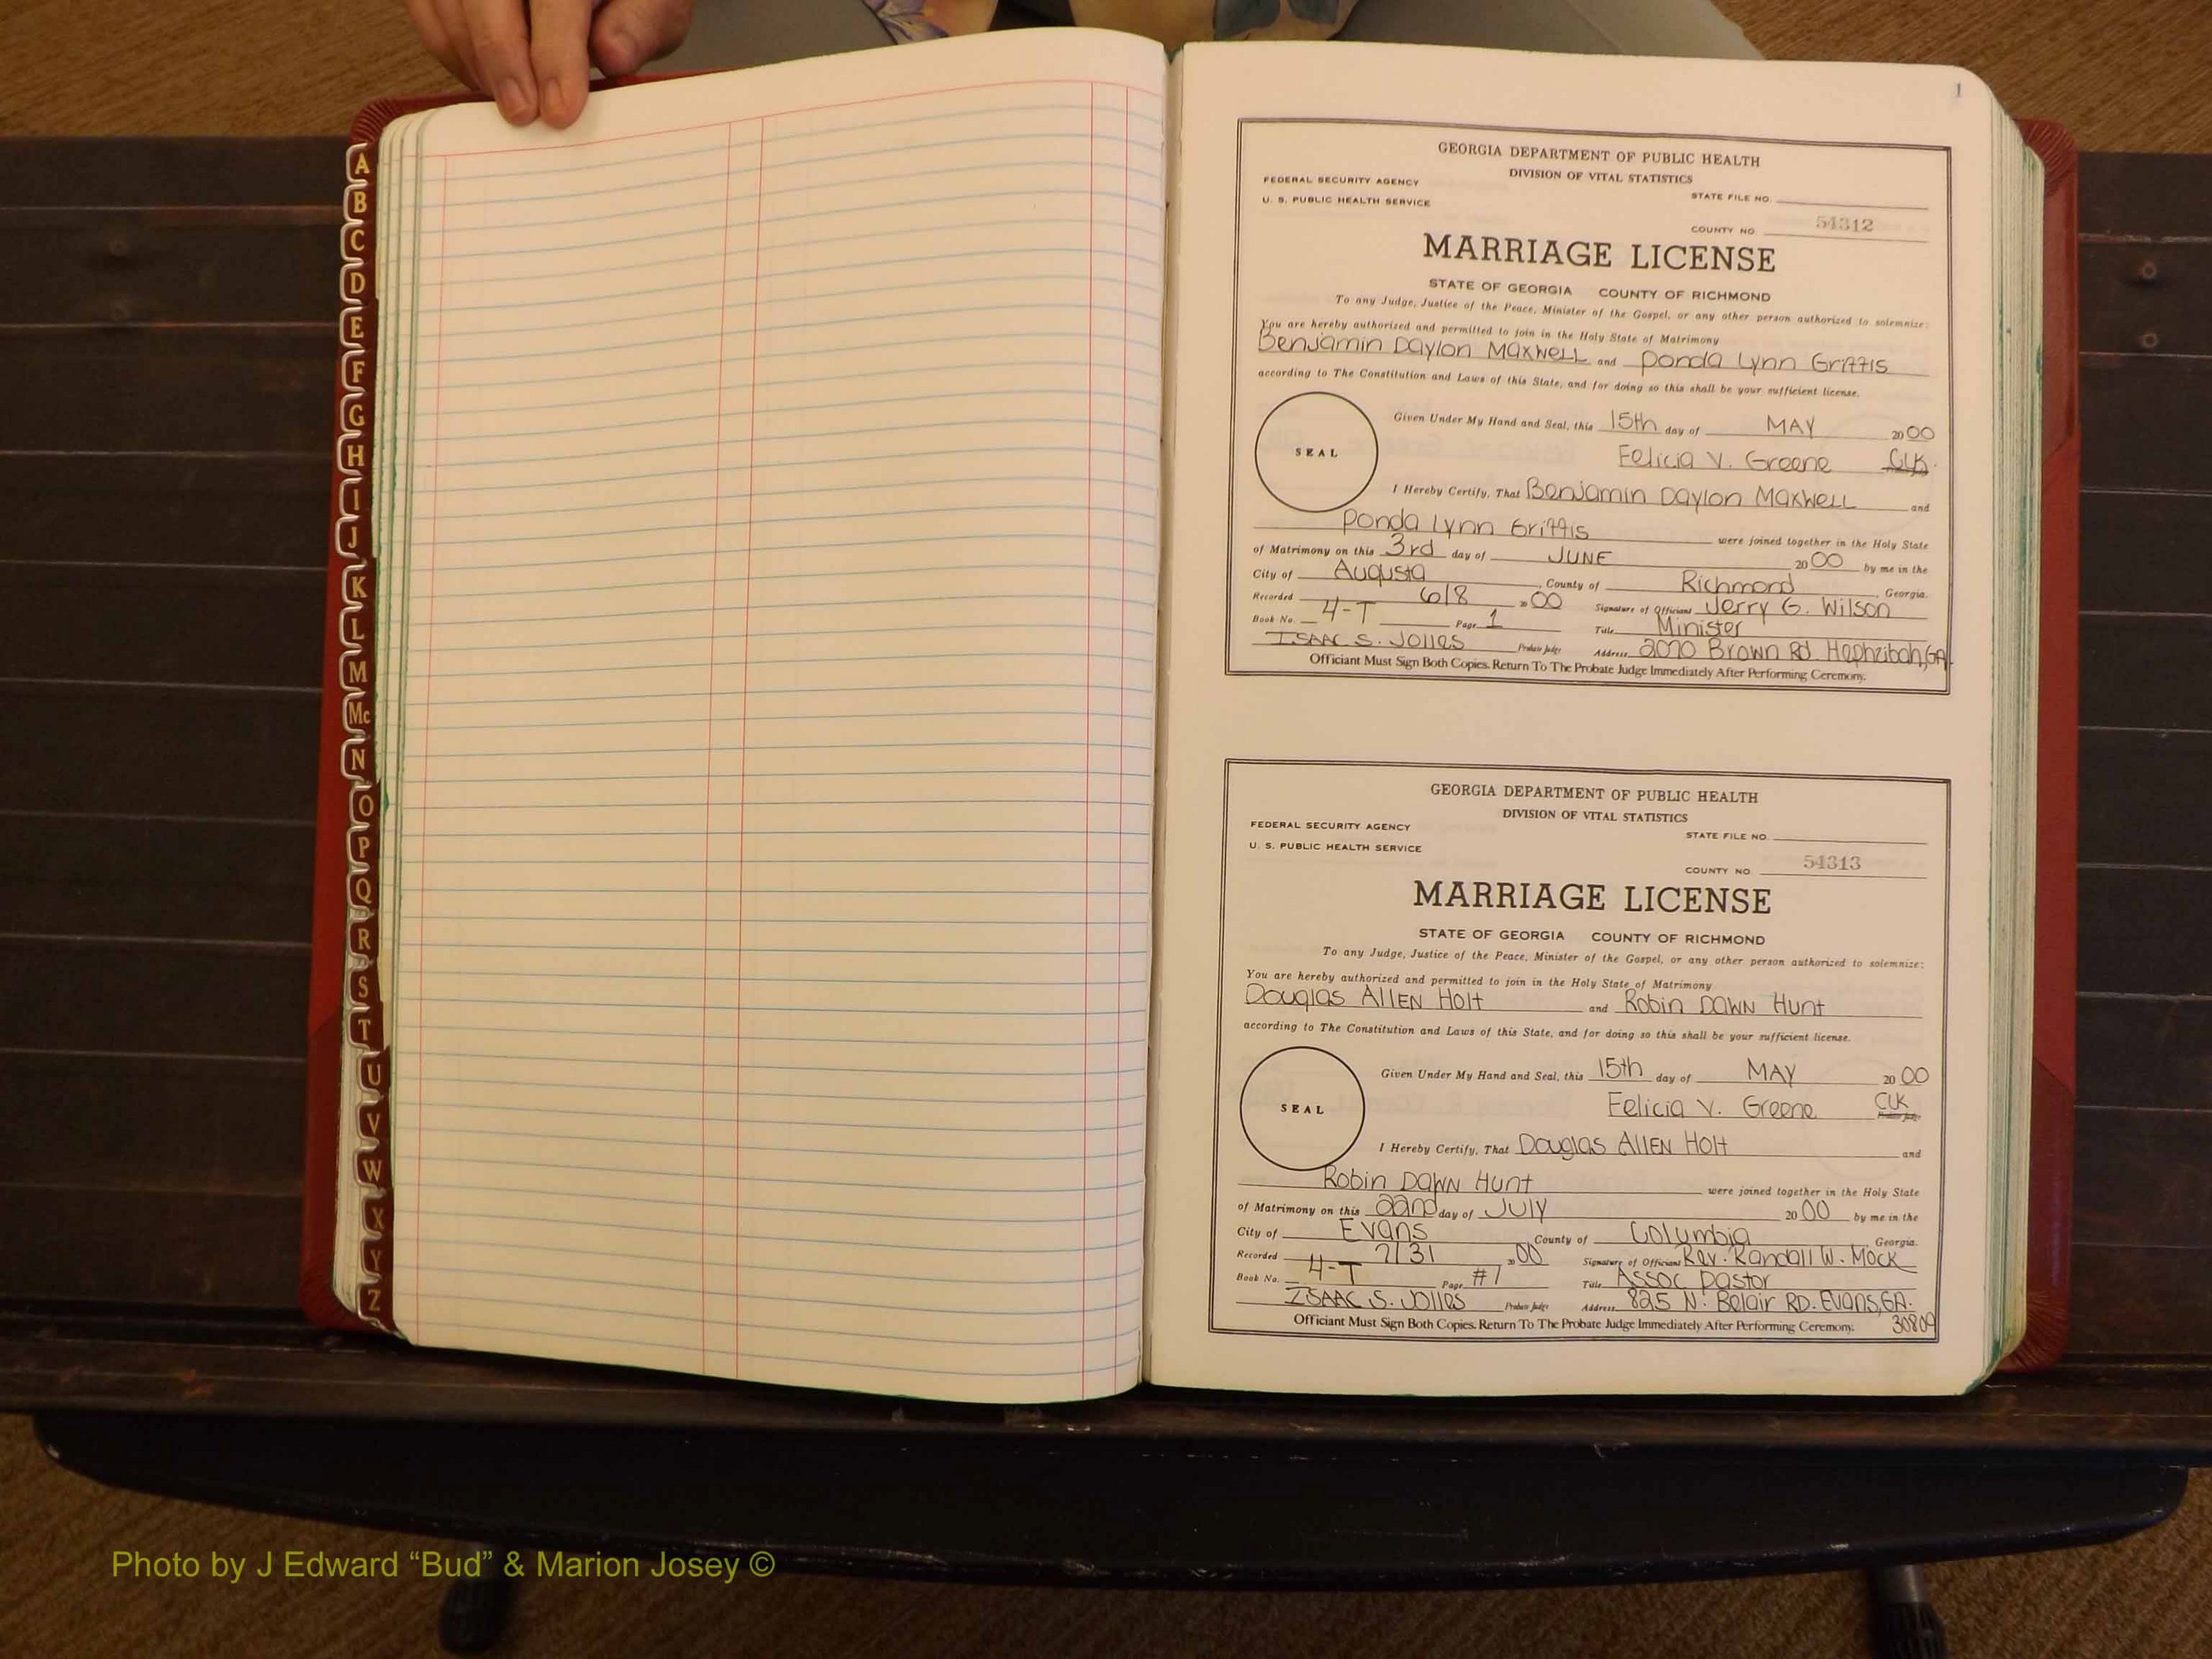 A
B
C
D
E
F
G
H
I
J
K
L
M
Mc
N
O
P
Q
R
S
T
U
V
W
X
Y
Z
1
GEORGIA DEPARTMENT OF PUBLIC HEALTH
DIVISION OF VITAL STATISTICS
FEDERAL SECURITY AGENCY
U. S. PUBLIC HEALTH SERVICE
STATE FILE NO.
COUNTY NO. 54312
MARRIAGE LICENSE
STATE OF GEORGIA COUNTY OF RICHMOND
To any Judge, Justice of the Peace, Minister of the Gospel, or any other person authorized to solemnize:
You are hereby authorized and permitted to join in the Holy State of Matrimony
Benjamin Daylon Maxwell and Ponda Lynn Griffis
according to The Constitution and Laws of this State, and for doing so this shall be your sufficient license.
Given Under My Hand and Seal, this 15th day of MAY 2000
SEAL
Felicia V. Greene CLK.
I Hereby Certify, That Benjamin Daylon Maxwell and
Ponda Lynn Griffis were joined together in the Holy State
of Matrimony on this 3rd day of JUNE 2000 by me in the
City of Augusta, County of Richmond, Georgia.
Recorded 6/8 2000 Signature of Officiant Jerry G. Wilson
Book No. 4-T Page 1 Title Minister
ISAAC S. Jolles Probate Judge Address 2070 Brown Rd. Hephzibah, GA.
Officiant Must Sign Both Copies. Return To The Probate Judge Immediately After Performing Ceremony.
GEORGIA DEPARTMENT OF PUBLIC HEALTH
DIVISION OF VITAL STATISTICS
FEDERAL SECURITY AGENCY
U. S. PUBLIC HEALTH SERVICE
STATE FILE NO.
COUNTY NO. 54313
MARRIAGE LICENSE
STATE OF GEORGIA COUNTY OF RICHMOND
To any Judge, Justice of the Peace, Minister of the Gospel, or any other person authorized to solemnize:
You are hereby authorized and permitted to join in the Holy State of Matrimony
Douglas Allen Holt and Robin Dawn Hunt
according to The Constitution and Laws of this State, and for doing so this shall be your sufficient license.
Given Under My Hand and Seal, this 15th day of MAY 2000
SEAL
Felicia V. Greene CLK
Probate Judge
I Hereby Certify, That Douglas Allen Holt and
Robin Dawn Hunt were joined together in the Holy State
of Matrimony on this 22nd day of JULY 2000 by me in the
City of Evans County of Columbia Georgia.
Recorded 7/31 2000 Signature of Officiant Rev. Randall W. Mock
Book No. 4-T Page #1 Title Assoc Pastor
ISAAC S. Jolles Probate Judge Address 825 N. Belair RD. Evans, GA.
Officiant Must Sign Both Copies. Return To The Probate Judge Immediately After Performing Ceremony. 30809
Photo by J Edward “Bud” & Marion Josey ©